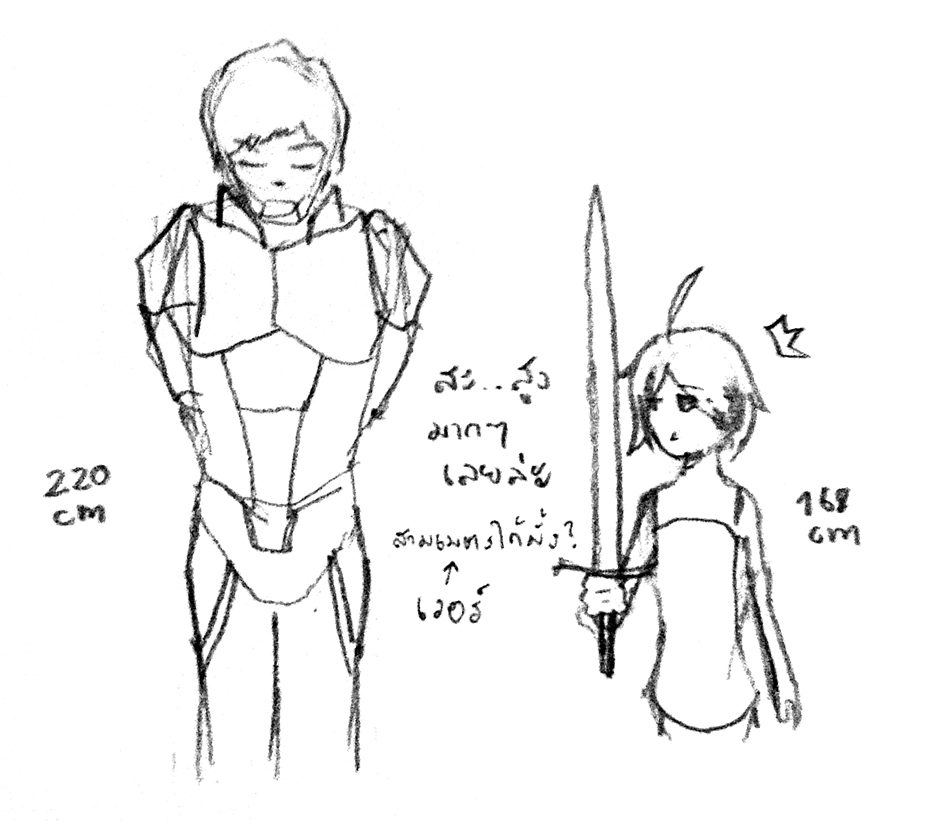 220
cm
สะ..สูง
มากๆ
เลยล่ะ
สามเมตรได้มั้ง?
↑
เวอร์
168
cm